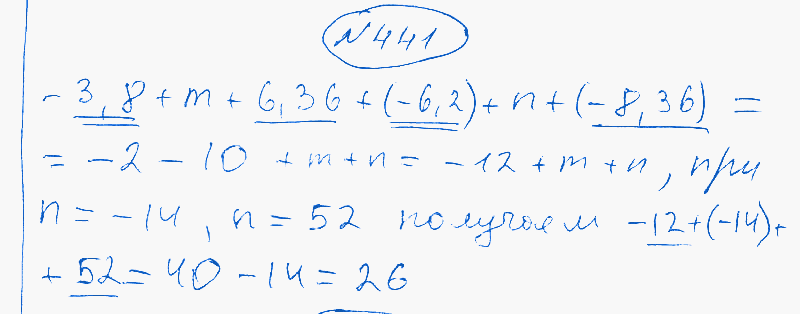 N441
- 3,8 + m + 6,36 + (-6,2) + n + (-8,36) =
= -2 - 10 + m + n = -12 + m + n, при
n = -14, n = 52 получаем -12 + (-14) +
+ 52 = 40 - 14 = 26